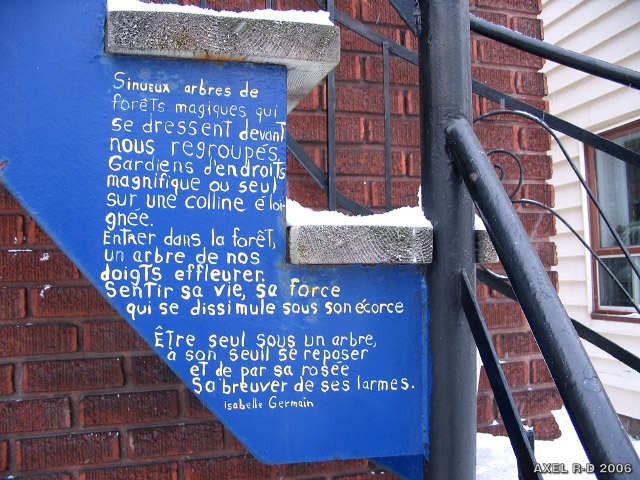 Sinueux arbres de
forêts magiques qui
se dressent devant
nous regroupés.
Gardiens d'endroits
magnifique ou seul
sur une colline éloi-
gnée.
Entrer dans la forêt,
un arbre de nos
doigts effleurer.
Sentir sa vie, sa force
qui se dissimule sous son écorce
Être seul sous un arbre,
à son seuil se reposer
et de par sa rosée
Sabreuver de ses larmes.
Isabelle Germain
AXEL R-D 2006